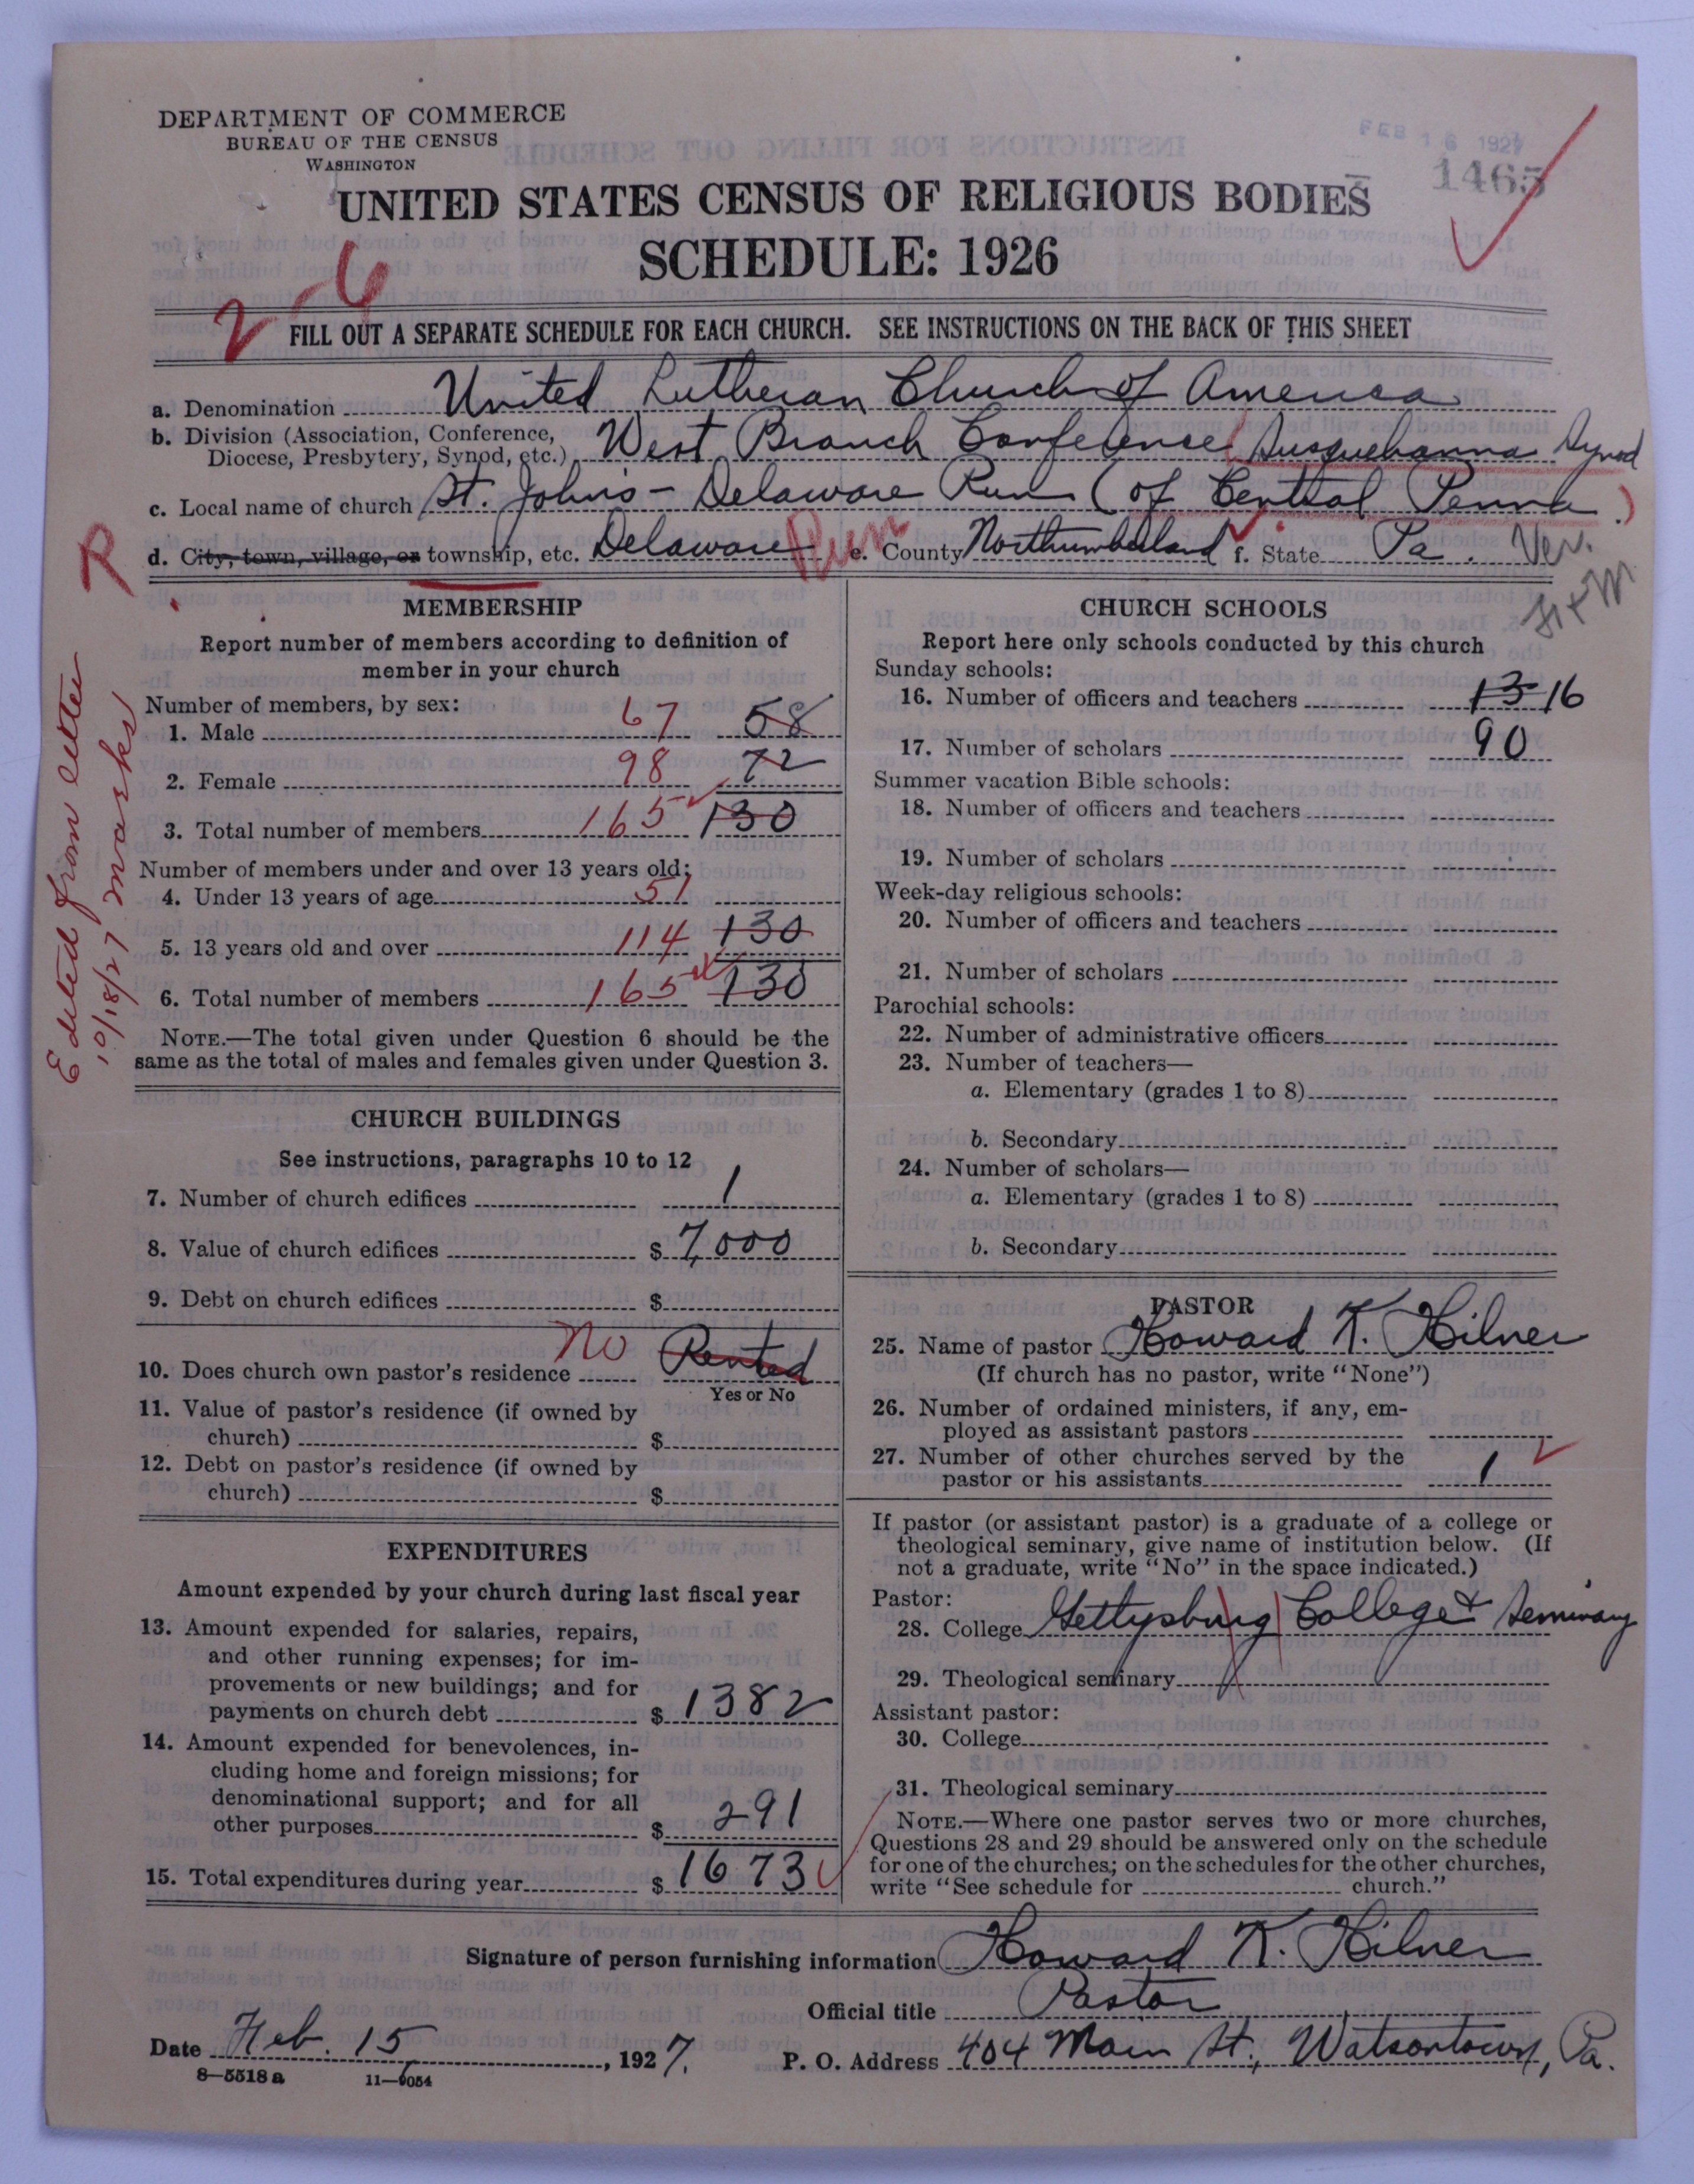 DEPARTMENT OF COMMERCE
BUREAU OF THE CENSUS
WASHINGTON
FEB 16 1927
1465
UNITED STATES CENSUS OF RELIGIOUS BODIES
SCHEDULE: 1926
2-6
FILL OUT A SEPARATE SCHEDULE FOR EACH CHURCH. SEE INSTRUCTIONS ON THE BACK OF THIS SHEET
a. Denomination United Lutheran Church of America
b. Division (Association, Conference, Diocese, Presbytery, Synod, etc.) West Branch Conference Susquehanna Synod
c. Local name of church St. John's - Delaware Run (of Central Penna.)
d. City, town, village, or township, etc. Delaware Run e. County Northumberland f. State Pa. Ver.
H+M
R
Edited from letter
10/18/27 marks
MEMBERSHIP
Report number of members according to definition of
member in your church
Number of members, by sex:
1. Male 67 58
2. Female 98 72
3. Total number of members 165 130
Number of members under and over 13 years old:
4. Under 13 years of age 51
5. 13 years old and over 114 130
6. Total number of members 165 130
NOTE.—The total given under Question 6 should be the
same as the total of males and females given under Question 3.
CHURCH BUILDINGS
See instructions, paragraphs 10 to 12
7. Number of church edifices 1
8. Value of church edifices $ 7,000
9. Debt on church edifices $
10. Does church own pastor's residence no Rented
Yes or No
11. Value of pastor's residence (if owned by
church) $
12. Debt on pastor's residence (if owned by
church) $
EXPENDITURES
Amount expended by your church during last fiscal year
13. Amount expended for salaries, repairs,
and other running expenses; for im-
provements or new buildings; and for
payments on church debt $ 1382
14. Amount expended for benevolences, in-
cluding home and foreign missions; for
denominational support; and for all
other purposes $ 291
15. Total expenditures during year $ 1673
CHURCH SCHOOLS
Report here only schools conducted by this church
Sunday schools:
16. Number of officers and teachers 13 16
17. Number of scholars 90
Summer vacation Bible schools:
18. Number of officers and teachers
19. Number of scholars
Week-day religious schools:
20. Number of officers and teachers
21. Number of scholars
Parochial schools:
22. Number of administrative officers
23. Number of teachers—
a. Elementary (grades 1 to 8)
b. Secondary
24. Number of scholars—
a. Elementary (grades 1 to 8)
b. Secondary
PASTOR
25. Name of pastor Howard K. Hilner
(If church has no pastor, write "None")
26. Number of ordained ministers, if any, em-
ployed as assistant pastors
27. Number of other churches served by the
pastor or his assistants 1
If pastor (or assistant pastor) is a graduate of a college or
theological seminary, give name of institution below. (If
not a graduate, write "No" in the space indicated.)
Pastor:
28. College Gettysburg College & Seminary
29. Theological seminary
Assistant pastor:
30. College
31. Theological seminary
NOTE.—Where one pastor serves two or more churches,
Questions 28 and 29 should be answered only on the schedule
for one of the churches; on the schedules for the other churches,
write "See schedule for church."
Signature of person furnishing information Howard K. Hilner
Official title Pastor
Date Feb. 15, 1927. P. O. Address 404 Main St., Watsontown, Pa.
8—5518 a 11—9054